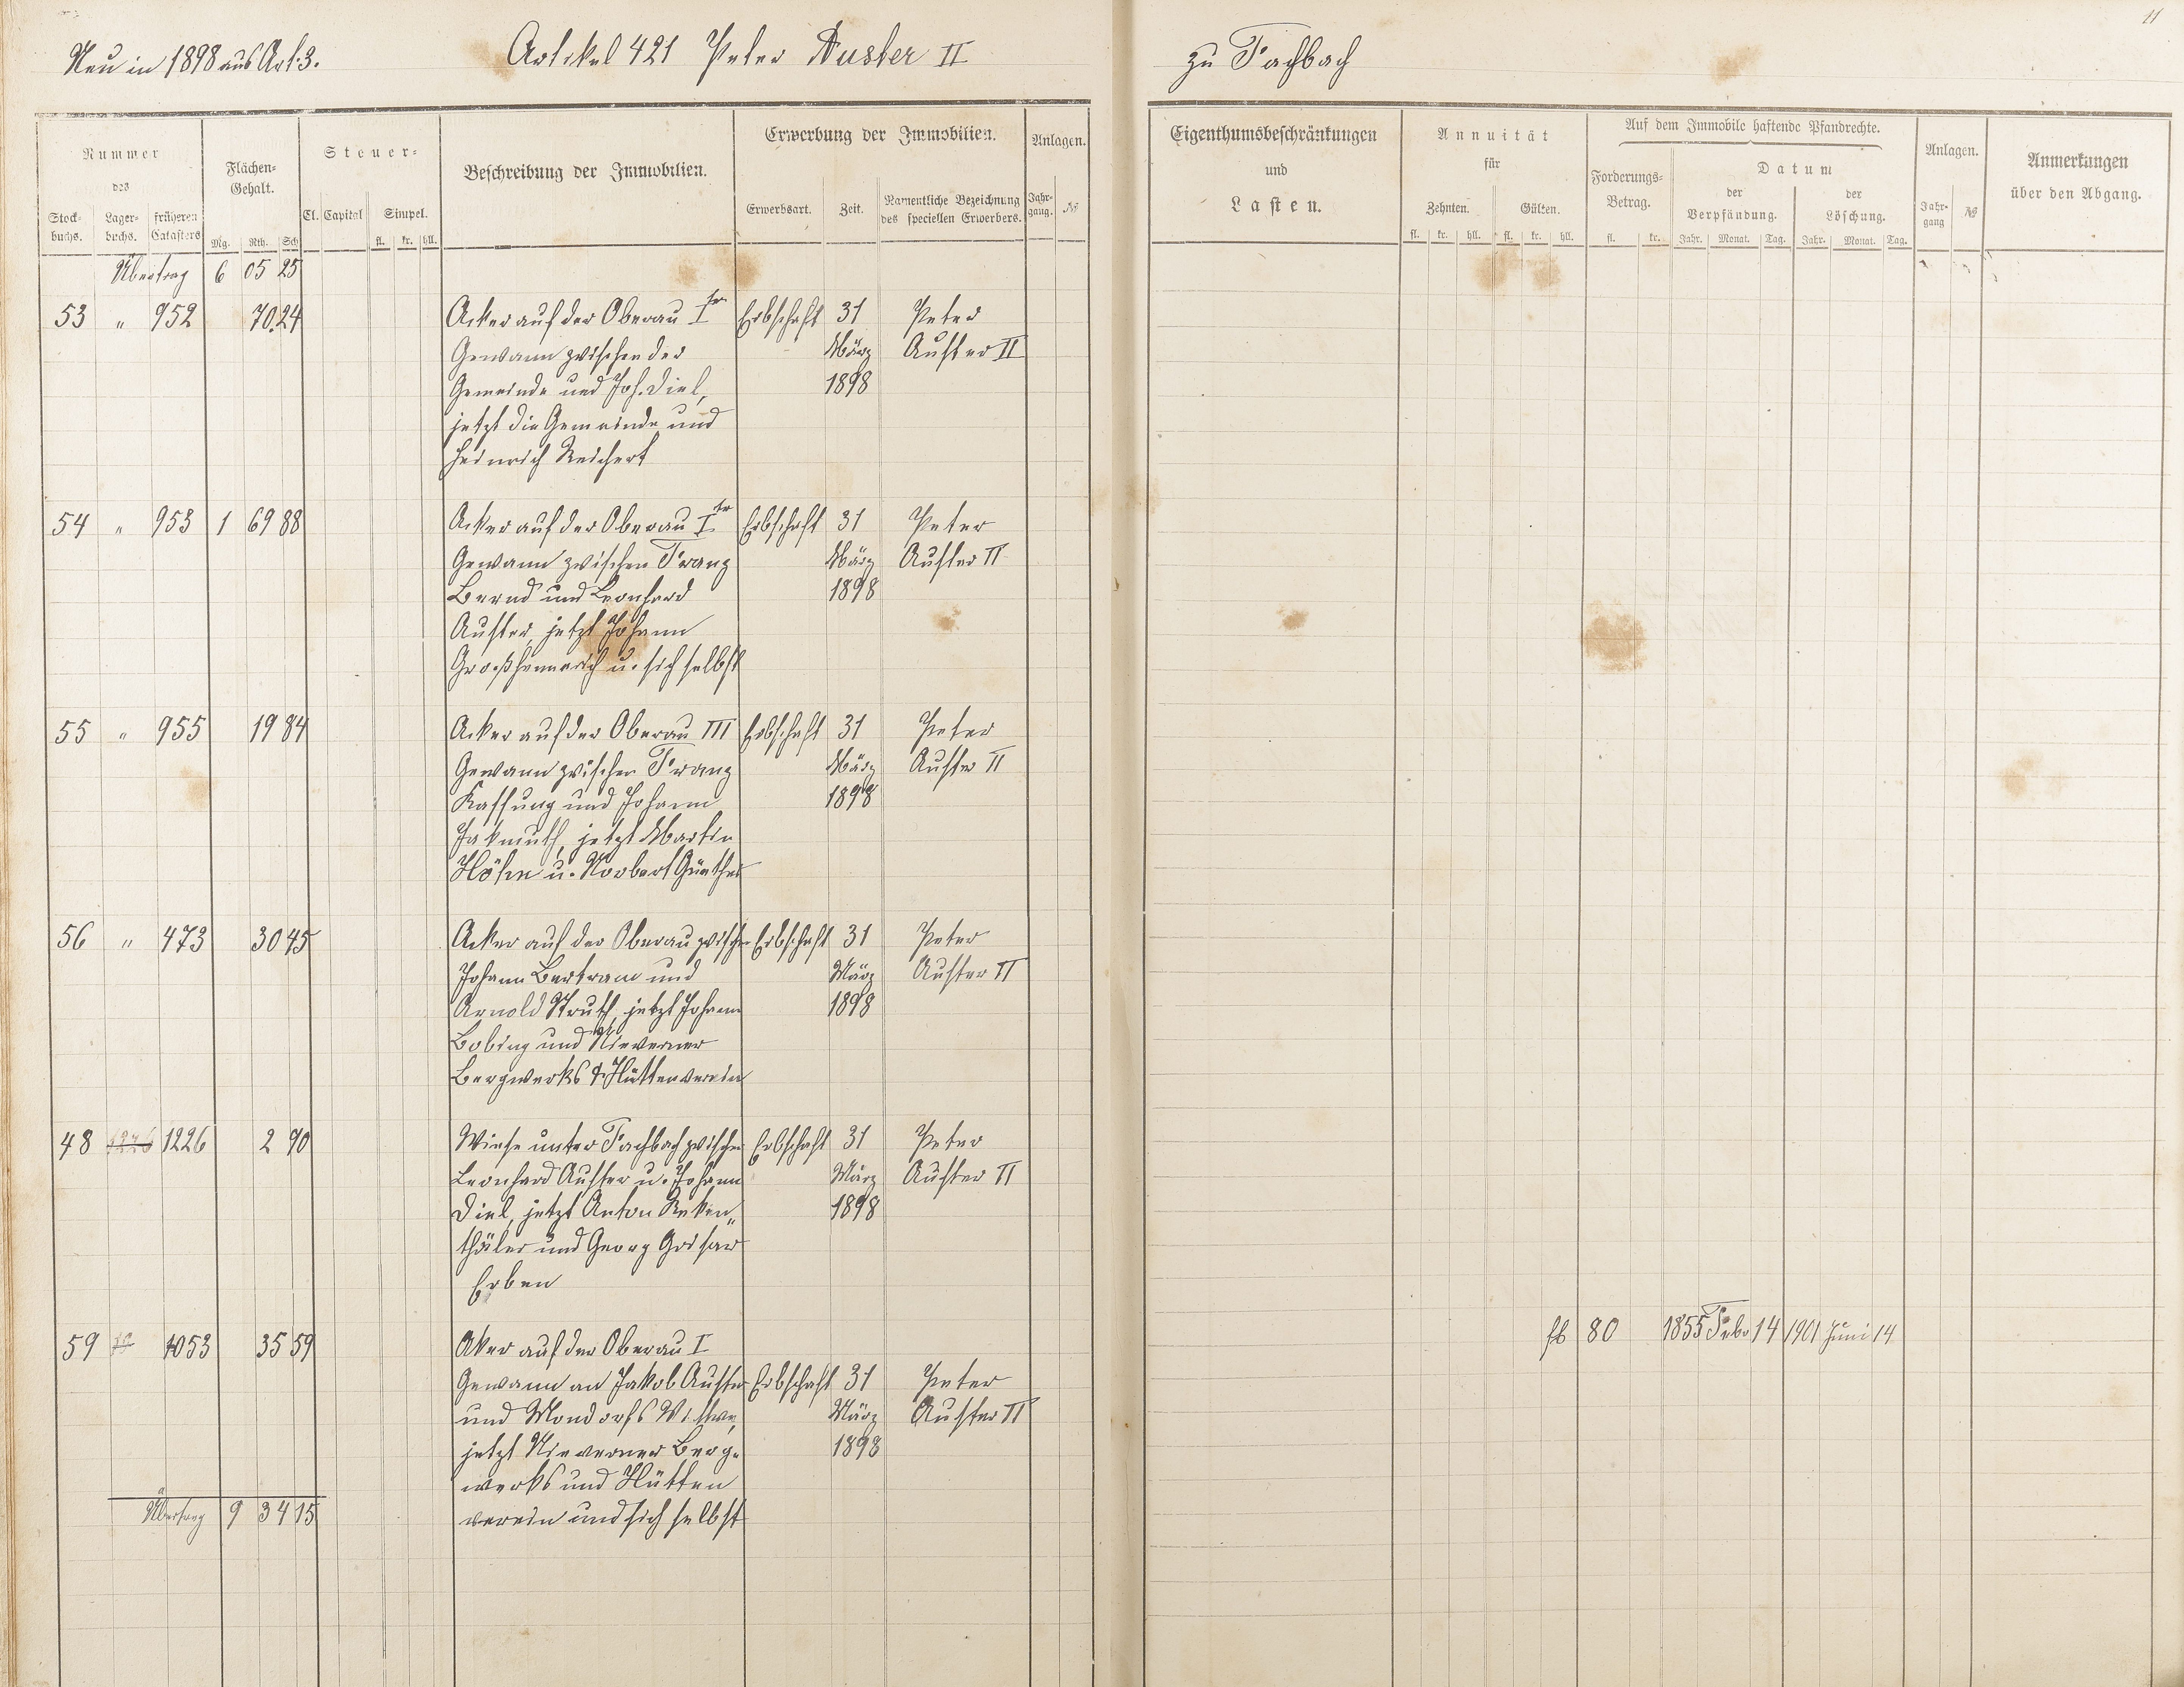 11
Neu in 1898 aus Art. 3.
Artikel 421 Peter Auster II
zu Fachbach
Nummer
des
Stock-
buchs.
Lager-
buchs.
früheren
Catasters
Flächen-
Gehalt.
Mg. Rth. Sch
Steuer-
Cl. Capital Simpel.
fl. kr. hll.
Beschreibung der Immobilien.
Erwerbung der Immobilien.
Erwerbsart. Zeit.
Namentliche Bezeichnung
des speciellen Erwerbers.
Anlagen.
Jahr-
gang. №
Eigenthumsbeschränkungen
und
Lasten.
Annuität
für
Zehnten. Gülten.
fl. kr. hll. fl. kr. hll.
Auf dem Immobile haftende Pfandrechte.
Forderungs-
Betrag.
fl. kr.
Datum
der
Verpfändung.
der
Löschung.
Jahr. Monat. Tag. Jahr. Monat. Tag.
Anlagen.
Jahr-
gang №
Anmerkungen
über den Abgang.
Übertrag 6 05 25
53 " 952 70.24 Acker auf der Oberau Ite Erbschaft 31 Peter
Gewann zwischen der März Auster II
Gemeinde und Joh. Diel, 1898
jetzt die Gemeinde und
Heinrich Reichert
54 " 953 1 69 88 Acker auf der Oberau Ite Erbschaft 31 Peter
Gewann zwischen Franz März Auster II
Bernd und Leonhard 1898
Auster, jetzt Johann
Großhennrich u. sich selbst
55 " 955 19 84 Acker auf der Oberau III Erbschaft 31 Peter
Gewann zwischen Franz März Auster II
und Johann 1898
jetzt Martin
Höhn u. Norbert Günther
56 " 473 30 45 Acker auf der Oberau zwischen Erbschaft 31 Peter
Johann Bertram und März Auster II
Arnold Struth, jetzt Johann 1898
Bobing und Nieverner
Bergwerks & Hüttenverein
48 1226 1226 2 90 Wiese unter Fachbach zwischen Erbschaft 31 Peter
Leonhard Auster u. Johann März Auster II
Diel, jetzt Anton Reken„ 1898
thäler und Georg Grisar
Erben
59 1053 35 59 Aker auf der Oberau I fl 80 1855 Febr 14 1901 Juni 14
Gewann an Jakob Auster Erbschaft 31 Peter
und Mondorfs Wittwe, März Auster II
jetzt Nieverner Berg- 1898
werks und Hütten
Übertrag 9 34 15 verein und sich selbst